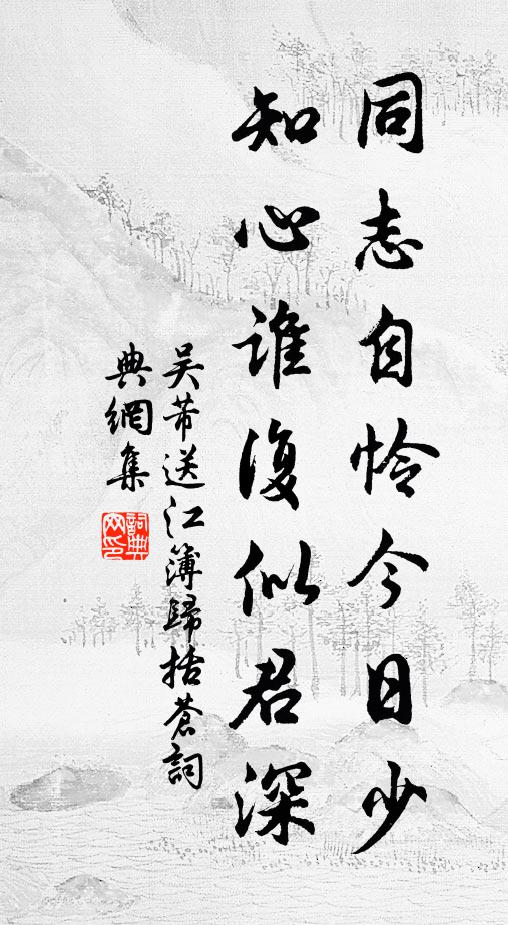 同志自怜今日少
知心谁復似君深
吴芾送江簿歸括蒼詞
典網集
詞典网印